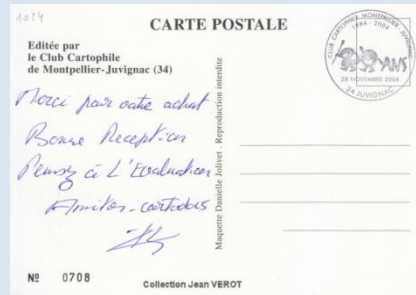 1084
CARTE POSTALE
Editée par
le Club Cartophile
de Montpellier-Juvignac (34)
CLUB CARTOPHILE MONTPELLIER - JUVIGNAC
1984 - 2004
20 ANS
28 NOVEMBRE 2004
34 JUVIGNAC
Merci pour votre achat
Bonne Reception
Pensez à L'Evaluation
Amities-cartodas
Maquette Danielle Jolivet - Reproduction interdite
Nº 0708
Collection Jean VEROT